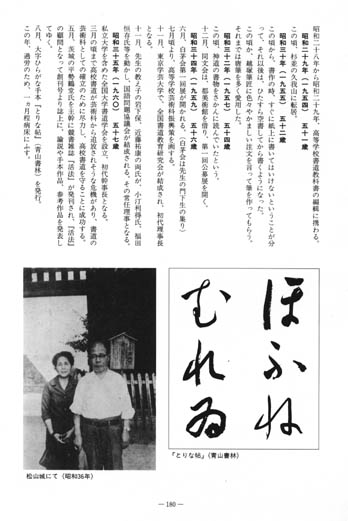 昭和二十八年から昭和二十九年、高等学校書道教科書の編纂に携わる。
昭和二十九年（一九五四）　五十一歳
六月、杉並の久我山に転居。
昭和三十年（一九五五）　五十二歳
この頃から、書作の時、すぐに紙上に書いてはいけないということが分
って、それ以後は、ひたすら空書してから書くようになった。
この頃から、越堀筆匠に色々やかましい注文を言って筆を作ってもらう。
それまでは唐筆を多く愛用した。
昭和三十二年（一九五七）　五十四歳
この頃、神道の書物をさかんに読んでいたという。
十二月、同文会は、都美術館を借り、第一回公募展を開く。
昭和三十四年（一九五九）　五十六歳
六月、白茅会第一回展が開かれる。（白茅会は先生の門下生の集り）
七月頃より、高等学校芸術科振興策を画する。
十一月、東京学芸大学で、全国書道教育研究会が結成され、初代理事長
となる。
十一月、先生の教え子である、近藤祐康の両氏が、小汀利得氏、福田
恒存氏等を動かし、国語問題協議会が結成される。その常任理事となる。
昭和三十五年（一九六〇）　五十七歳
私立大学を含めた全国大学書道学会を設立、初代幹事長となる。
三月の頃まで高校書道が芸術科から追放されそうな危機があり、書道の
芸術科としての確立のために尽力し、高校書道を守ることに成功する。
五月、茨城の平勢鶴堂氏を主幹に競書雑誌「活法」が発刊され、「活法」
の顧問となって創刊号より誌上に、論説や手本作品、参考作品を発表し
てゆく。
八月、大字ひらがな手本『とりな帖』（青山書林）を発行。
この年、過労のため、一ヵ月程病床にふす。
ほふね
むれゐ
『とりな帖』（青山書林）
松山城にて（昭和36年）
― 180 ―